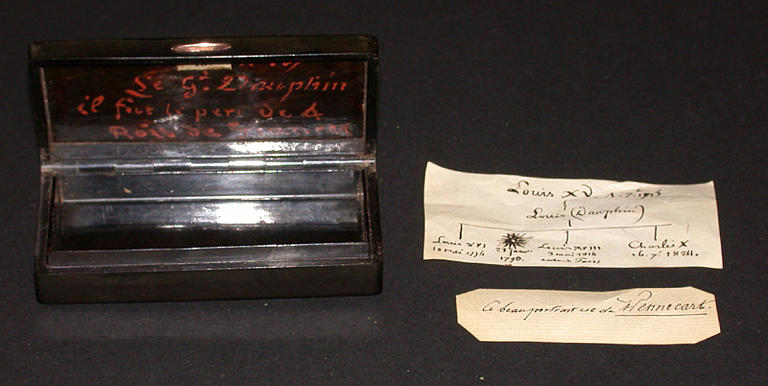 Le Gd. Dauphin
il fut le pere de 4
Rois de
Louis XV. 1. 7re 1715
Louis (Dauphin)
Louis XVI
10 mai 1774
21 janv.
1793.
Louis XVIII
3 mai 1814
entre à Paris
Charles X
16. 7re 1824.
Ce beau portrait est de Hennecart.